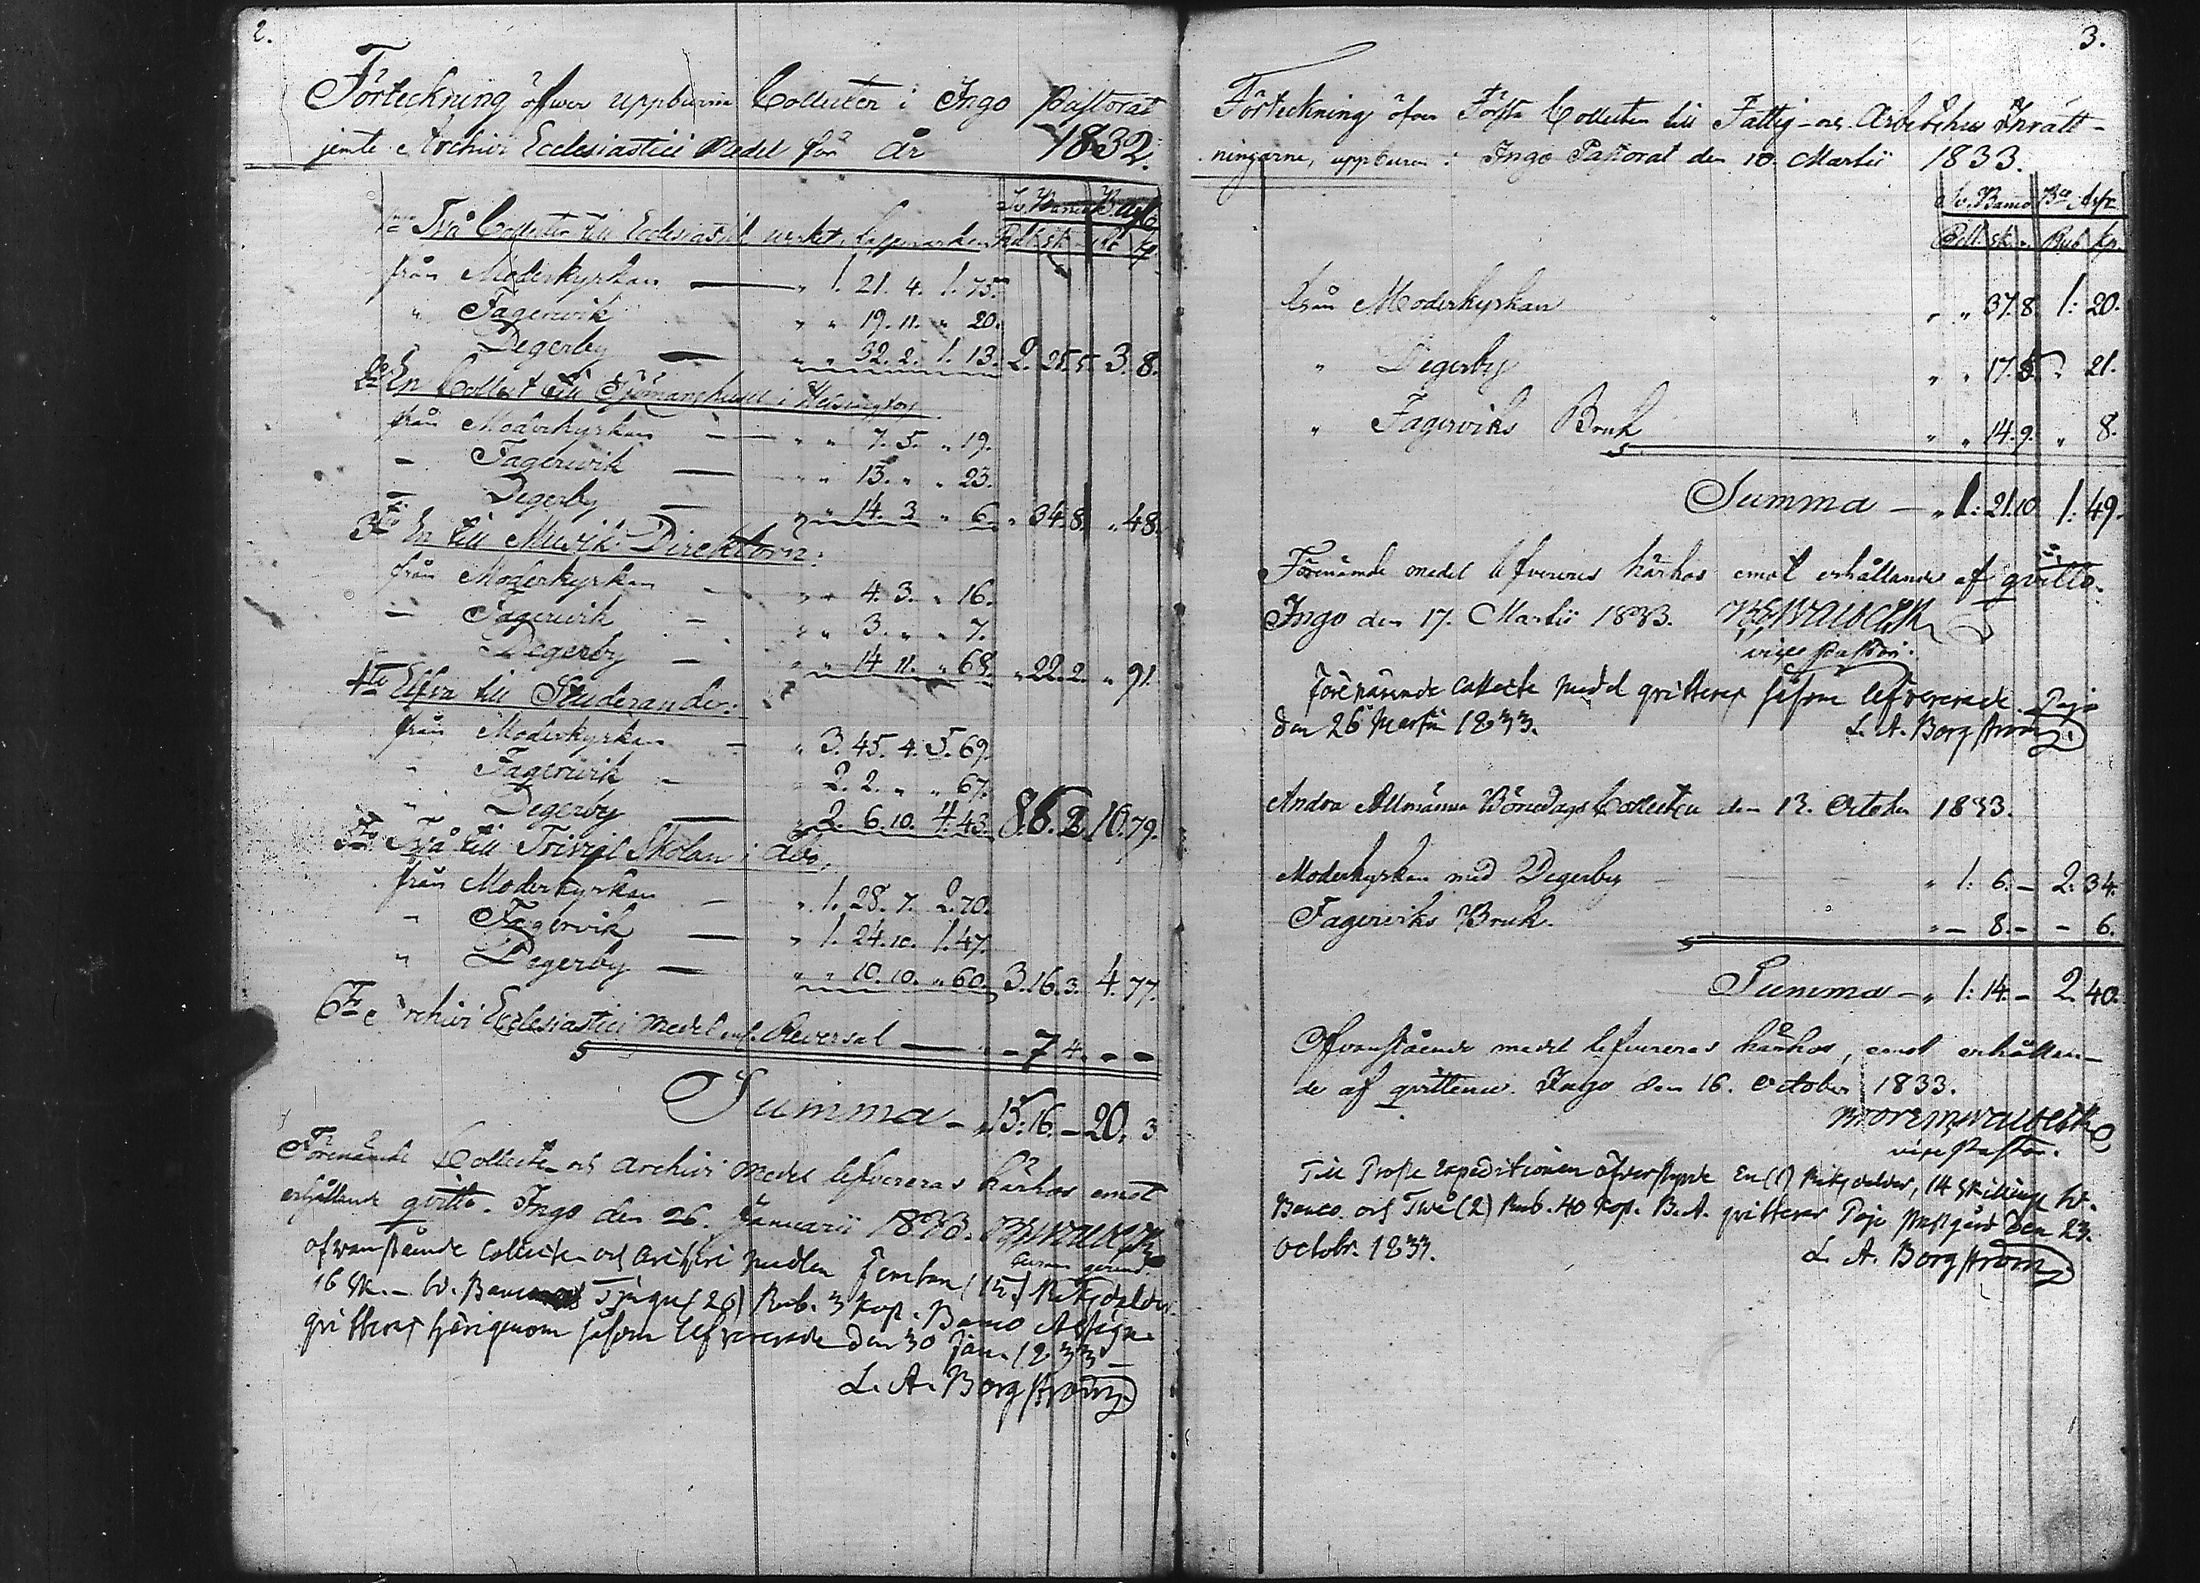 2.
Förteckning öfwer uppburne Collecter i Ingo Pastorat
jemte Archivi Ecclesiastici Medel för År 1832.
Sv. Banco B. A.
1mo Två Collecter till Ecclesiastik werket i Lappmarken Rdr sk. Rb. kp
från Moderkyrkan — " 1. 21. 4. 1. 75.
" Fagerwik " " 19. 11. " 20.
Degerby — " " 32. 2. 1. 13. 2. 25. 5. 3. 8.
2do En Collect till Sjömanshuset i Helsingfors
från Moderkyrkan — " " 7. 5. " 19.
— Fagerwik — " " 13. " " 23.
— Degerby — " " 14. 3. " 6. " 34. 8. " 48.
3to En till Musik Direktorn:
från Moderkyrkan - " " 4. 3. " 16.
— Fagerwik - " " 3. " " 7.
Degerby — " " 14. 11. " 68. " 22. 2. " 91.
4to Elfva till Studerander:
från Moderkyrkan — " 3. 45. 4. 5. 69.
" Fagerwik - 2. 2. " " 67.
" Degerby — " 2 6. 10. 4. 43. 8. 6. 2. 10. 79.
5to Två till Trivial Skolan i Åbo.
från Moderkyrkan — " 1. 28. 7. 2. 70.
" Fagerwik — " 1. 24. 10. 1. 47.
" Degerby — " " 10. 10. " 60. 3. 16. 3. 4. 77.
6to Archivi Ecclesiastici Medel enl. Reversal — " - 7 4. - -
Summa — " 15. 16. — 20. 3
Förenämde Collecter och Archivi Medel lefvereras härhos emot
erhållande qvitto. Ingo den 26. Januarii 1833.
ofvanstående Collecter och Archivi medlen Femton (15) Riksdaler
16 sk. — Sv. Banco och Tjugu (20) Rub. 3 Kop. Banco Assign.
qvitteras härigenom såsom lefvererade den 30 Jan. 1833 —
L. A. Borgström
3.
Förteckning öfver Första Collecten till Fattig- och Arbetshus Inrätt-
ningarne, uppburen i Ingo Pastorat den 10. Martii 1833.
Sv. Banco Bco Ass.
Rdr sk. Rub kp.
från Moderkyrkan " " 37. 8. 1: 20.
" Degerby " " 17. 5. " 21.
" Fagerviks Bruk " " 14. 9. " 8.
Summa — " 1: 21. 10. 1: 49.
Förenämde medel lefvereras härhos emot erhållande af qvitto.
Ingo den 17. Martii 1833.
vice Pastor.
förenämnde Collecte medel qvitteras såsom lefvererade. Pojo
den 26 Martii 1833. L. A. Borgström
Andra Allmänna BönedagsCollecten den 13. October 1833.
Moderkyrkan med Degerby " 1: 6. — 2: 34.
Fagerviks Bruk. " — 8. — — 6.
Summa — " 1: 14. — 2. 40.
Ofvanstående medel lefvereras härhos, emot erhållan-
de af qvittence. Ingo den 16. October 1833.
vice Pastor.
Till Prosts Expeditionen öfversände En (1) Riksdaler, 14 Skillingar Sv.
Banco. och Två (2) Rub. 40 Kop. B. A. qvitteras Pojo prestgård den 23.
Octobr. 1833. L. A. Borgström